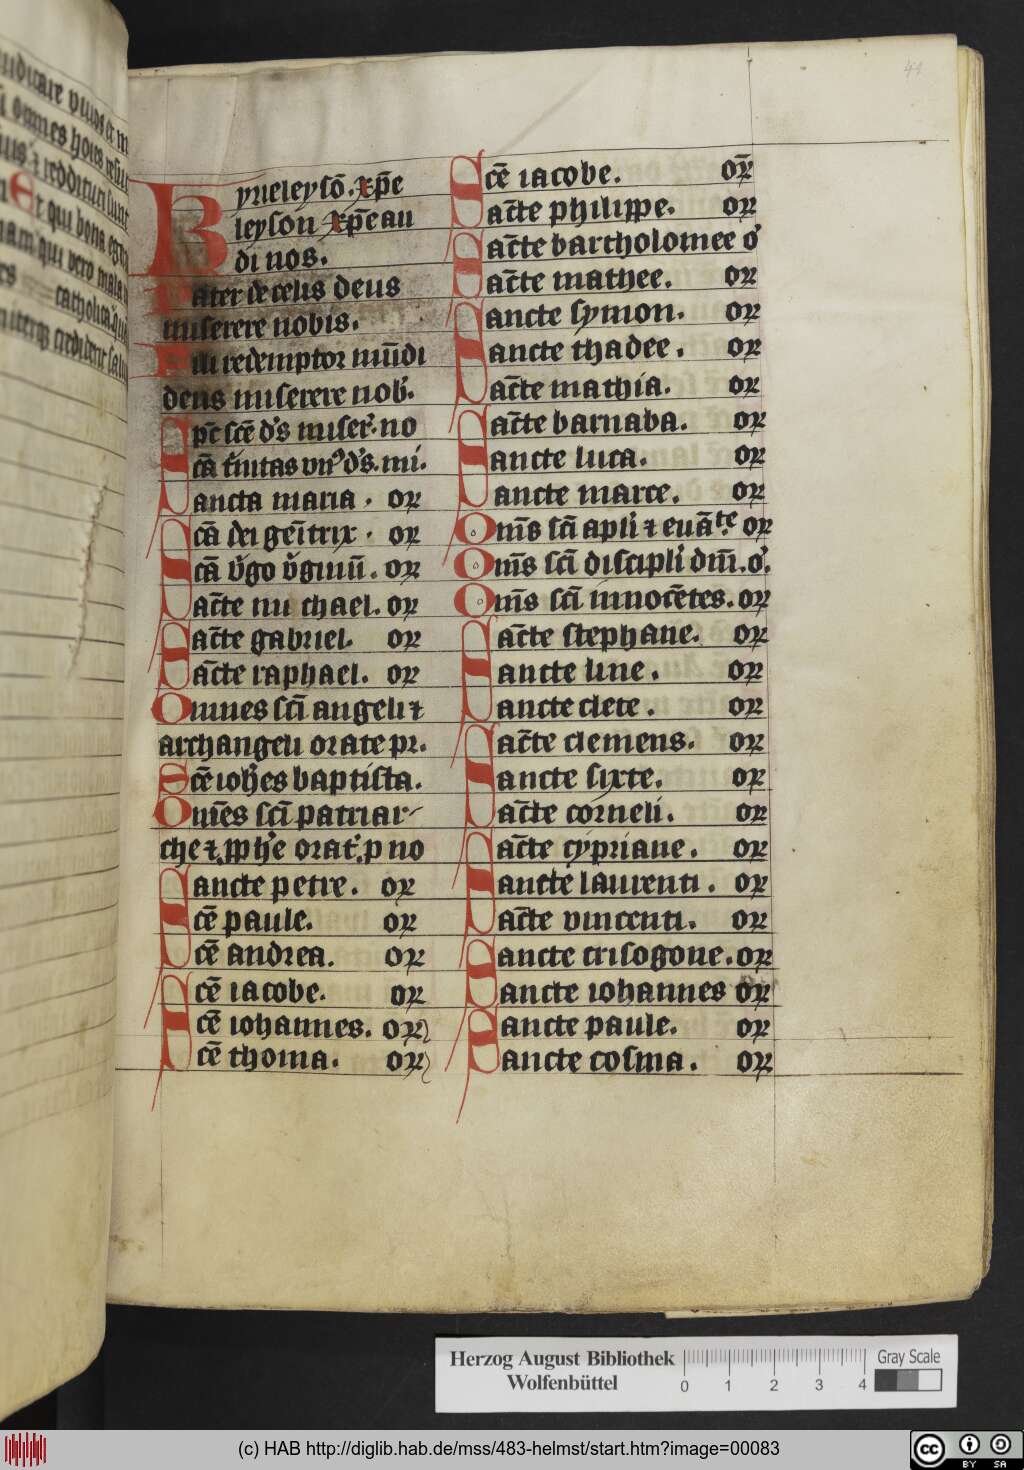 41
Kyrieleyſō. xp̄e
leyſon xp̄e au
di nos.
Pater de celis deus
miſerere nobis.
Fili redemptor mūdi
deus miſerere nob̓.
Spc̄ ſcē ds̓ miſer̓. no
Scā t̓nitas vn̓ ds̓. mi.
Sancta maria . oꝝ
Scā dei gen̄itrix . oꝝ
Scā v̓go v̓ginū. oꝝ
Sac̄te michael. oꝝ
Sac̄te gabriel. oꝝ
Sac̄te raphael. oꝝ
Omnes ſcī angeli ⁊
archangeli orate pr.
Scē ioh̄es baptiſta.
Om̄es ſcī patriar
che ⁊ ꝓph̄e orat̓ p no
Sancte petre. oꝝ
Scē paule. oꝝ
Scē andrea. oꝝ
Scē iacobe. oꝝ
Scē iohannes. oꝝ
Scē thoma. oꝝ
Scē iacobe. oꝝ
Sac̄te philippe. oꝝ
Sac̄te bartholomee o̓
Sac̄te mathee. oꝝ
Sancte ſymon. oꝝ
Sancte thadee. oꝝ
Sac̄te mathia. oꝝ
Sac̄te barnaba. oꝝ
Sancte luca. oꝝ
Sancte marce. oꝝ
Om̄s ſcī apli̓ ⁊ euāte oꝝ
Om̄s ſcī diſcipli̓ dm̄. o̓.
Om̄s ſcī innocētes. oꝝ
Sac̄te ſtephane. oꝝ
Sancte line. oꝝ
Sancte clete. oꝝ
Sac̄te clemens. oꝝ
Sancte ſixte. oꝝ
Sac̄te corneli. oꝝ
Sac̄te cypriane. oꝝ
Sancte laurenti. oꝝ
Sac̄te vincenti. oꝝ
Sancte criſogone. oꝝ
Sancte iohannes oꝝ
Sancte paule. oꝝ
Sancte coſma. oꝝ
Herzog August Bibliothek
Wolfenbüttel
0 1 2 3 4
Gray Scale
(c) HAB http://diglib.hab.de/mss/483-helmst/start.htm?image=00083
CC BY SA